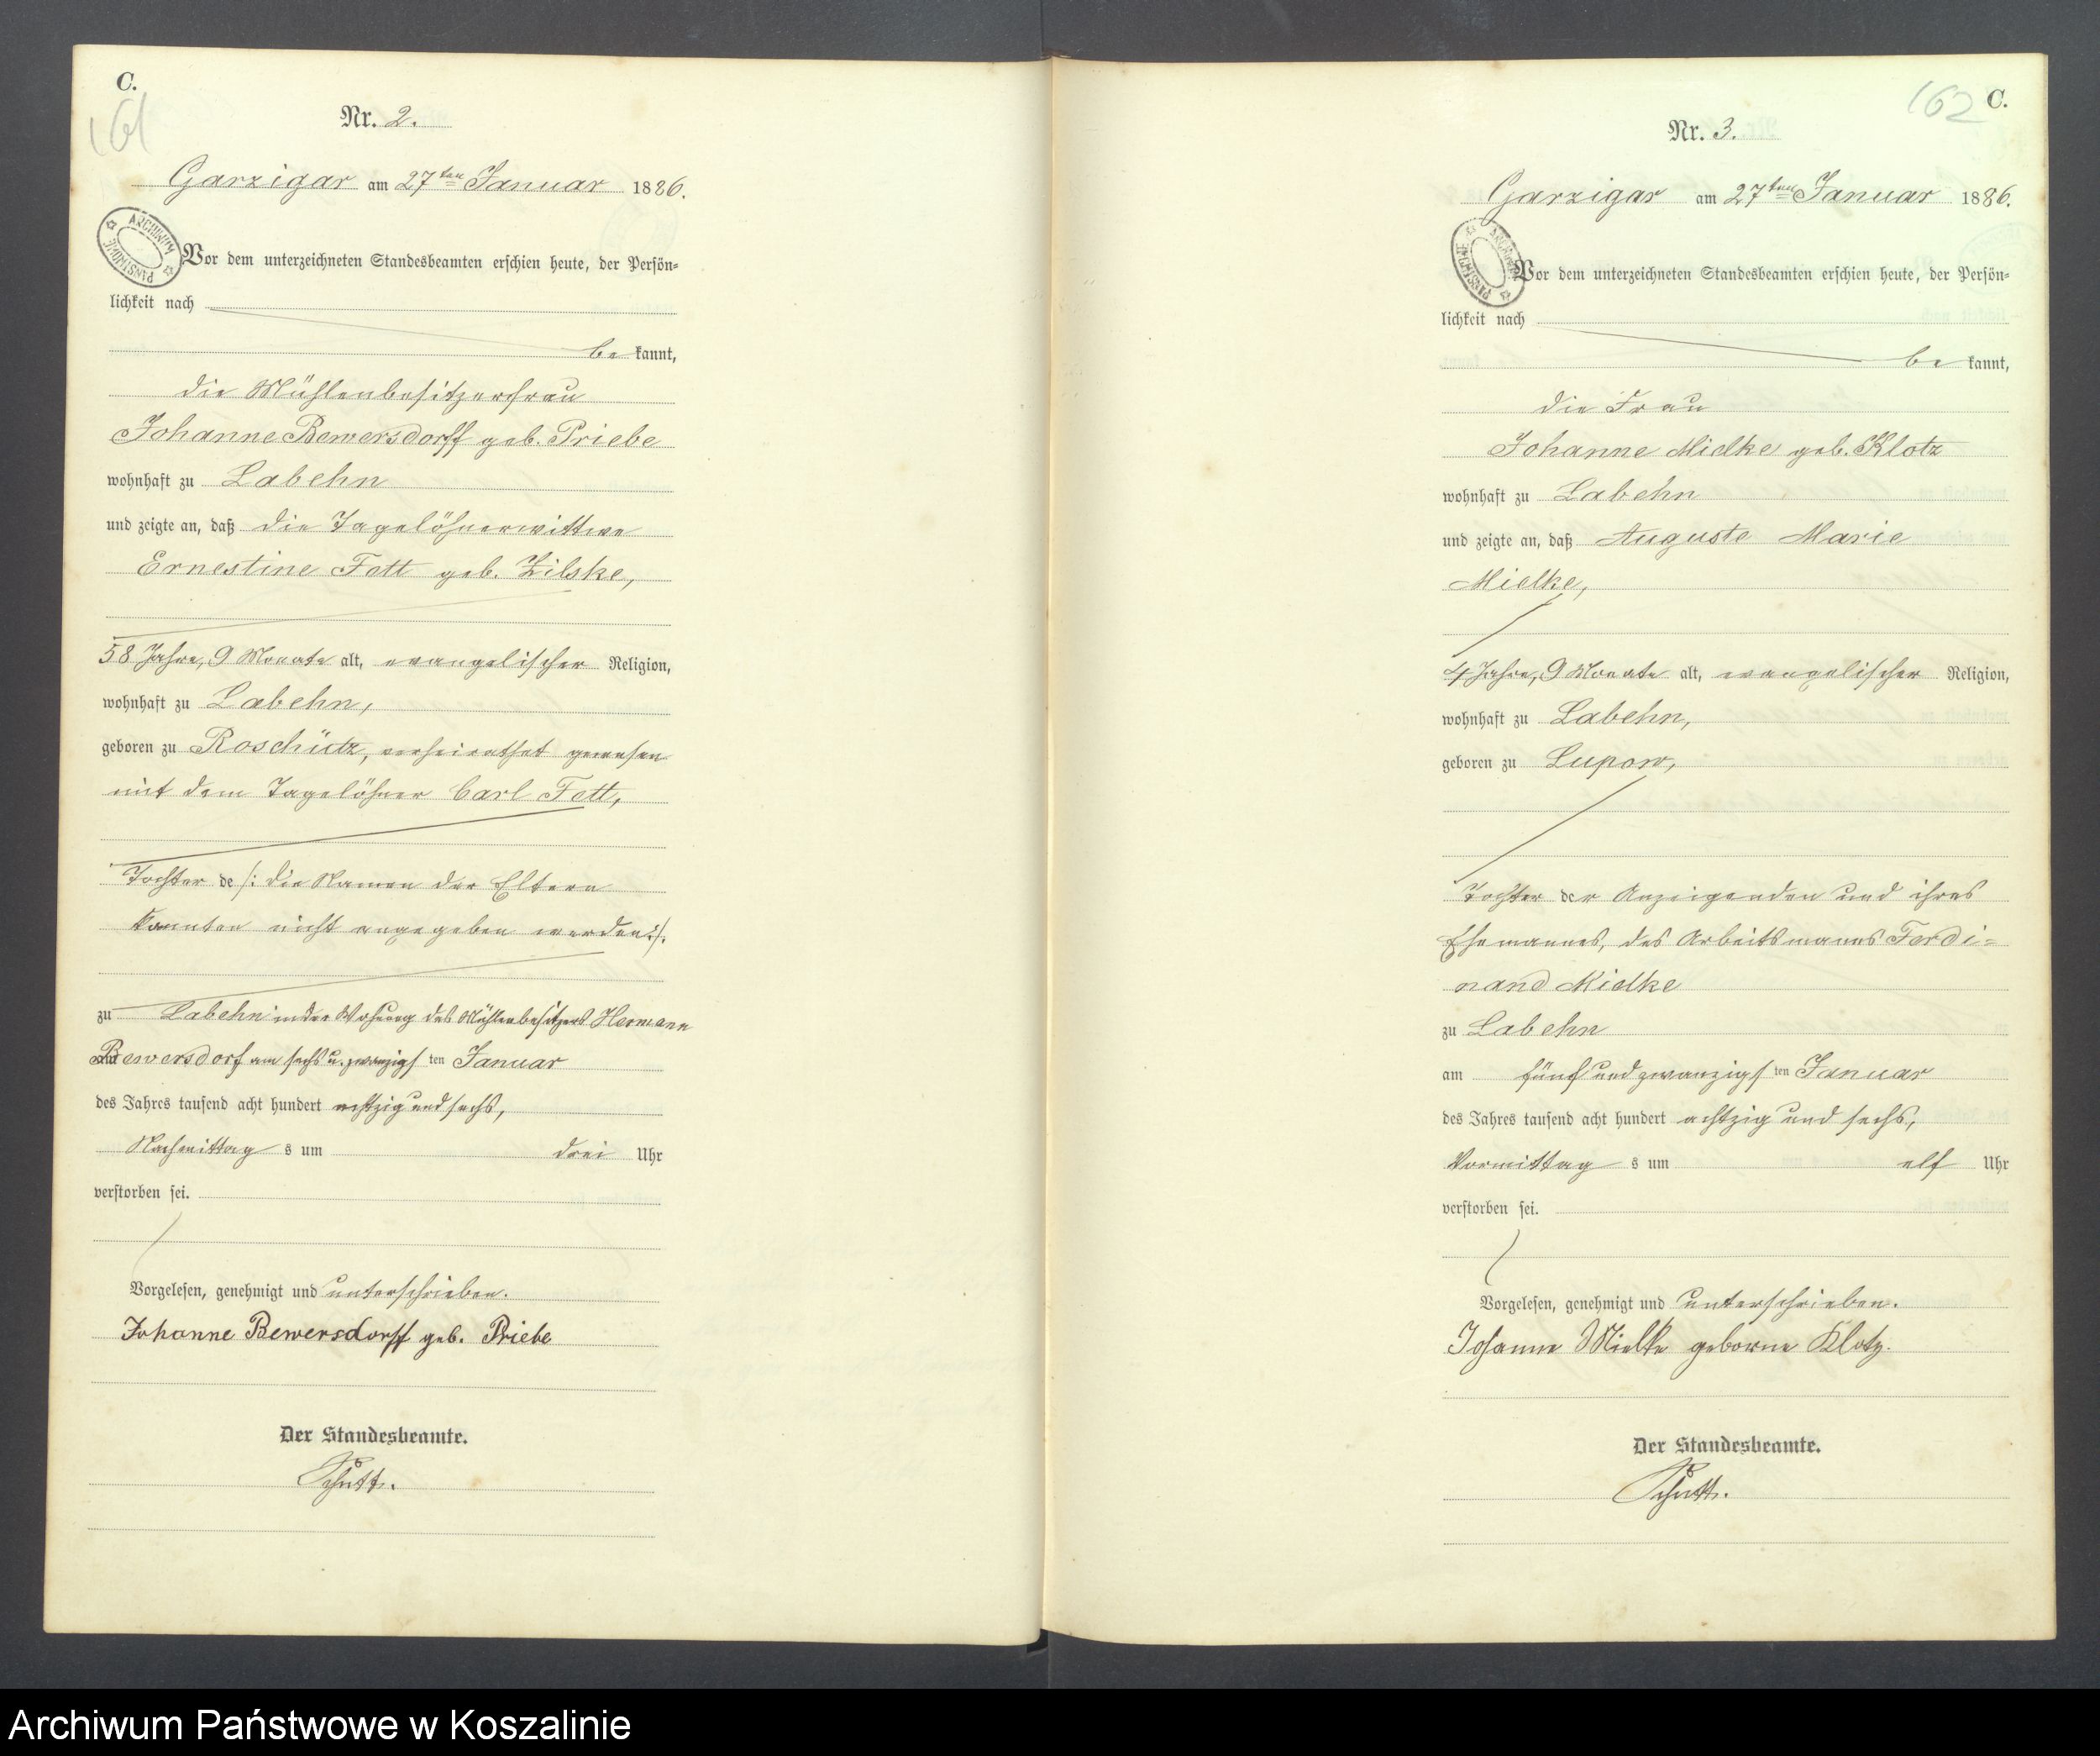 C.
161
Nr. 2.
Garzigar am 27ten Januar 1886.
ARCHIWUM PAŃSTWOWE
Vor dem unterzeichneten Standesbeamten erschien heute, der Persön-
lichkeit nach
be kannt,
die Mühlenbesitzerfrau
Johanne Bewersdorff geb. Priebe
wohnhaft zu Labehn
und zeigte an, daß die Tagelöhnerwittwe
Ernestine Fett geb. Zilske,
58 Jahre, 9 Monate alt, evangelischer Religion,
wohnhaft zu Labehn,
geboren zu Roschütz, verheirathet gewesen
mit dem Tagelöhner Carl Fett,
Tochter de /: die Namen der Eltern
konnten nicht angegeben werden :/.
zu Labehn in der Wohnung des Mühlenbesitzers Hermann
Bewersdorf am sechs u. zwanzigs ten Januar
des Jahres tausend acht hundert achtzig und sechs,
Nachmittag s um drei Uhr
verstorben sei.
Vorgelesen, genehmigt und unterschrieben.
Johanne Bewersdorff geb. Priebe
Der Standesbeamte.
Schutt.
162
C.
Nr. 3.
Garzigar am 27ten Januar 1886.
ARCHIWUM PAŃSTWOWE
Vor dem unterzeichneten Standesbeamten erschien heute, der Persön-
lichkeit nach
be kannt,
die Frau
Johanne Mielke geb. Klotz
wohnhaft zu Labehn
und zeigte an, daß Auguste Marie
Mielke,
4 Jahre, 9 Monate alt, evangelischer Religion,
wohnhaft zu Labehn,
geboren zu Lupow,
Tochter der Anzeigenden und ihres
Ehemannes, des Arbeitsmanns Ferdi-
nand Mielke
zu Labehn
am fünf und zwanzigs ten Januar
des Jahres tausend acht hundert achtzig und sechs,
Vormittag s um elf Uhr
verstorben sei.
Vorgelesen, genehmigt und unterschrieben.
Johanne Mielke geborne Klotz.
Der Standesbeamte.
Schutt.
Archiwum Państwowe w Koszalinie